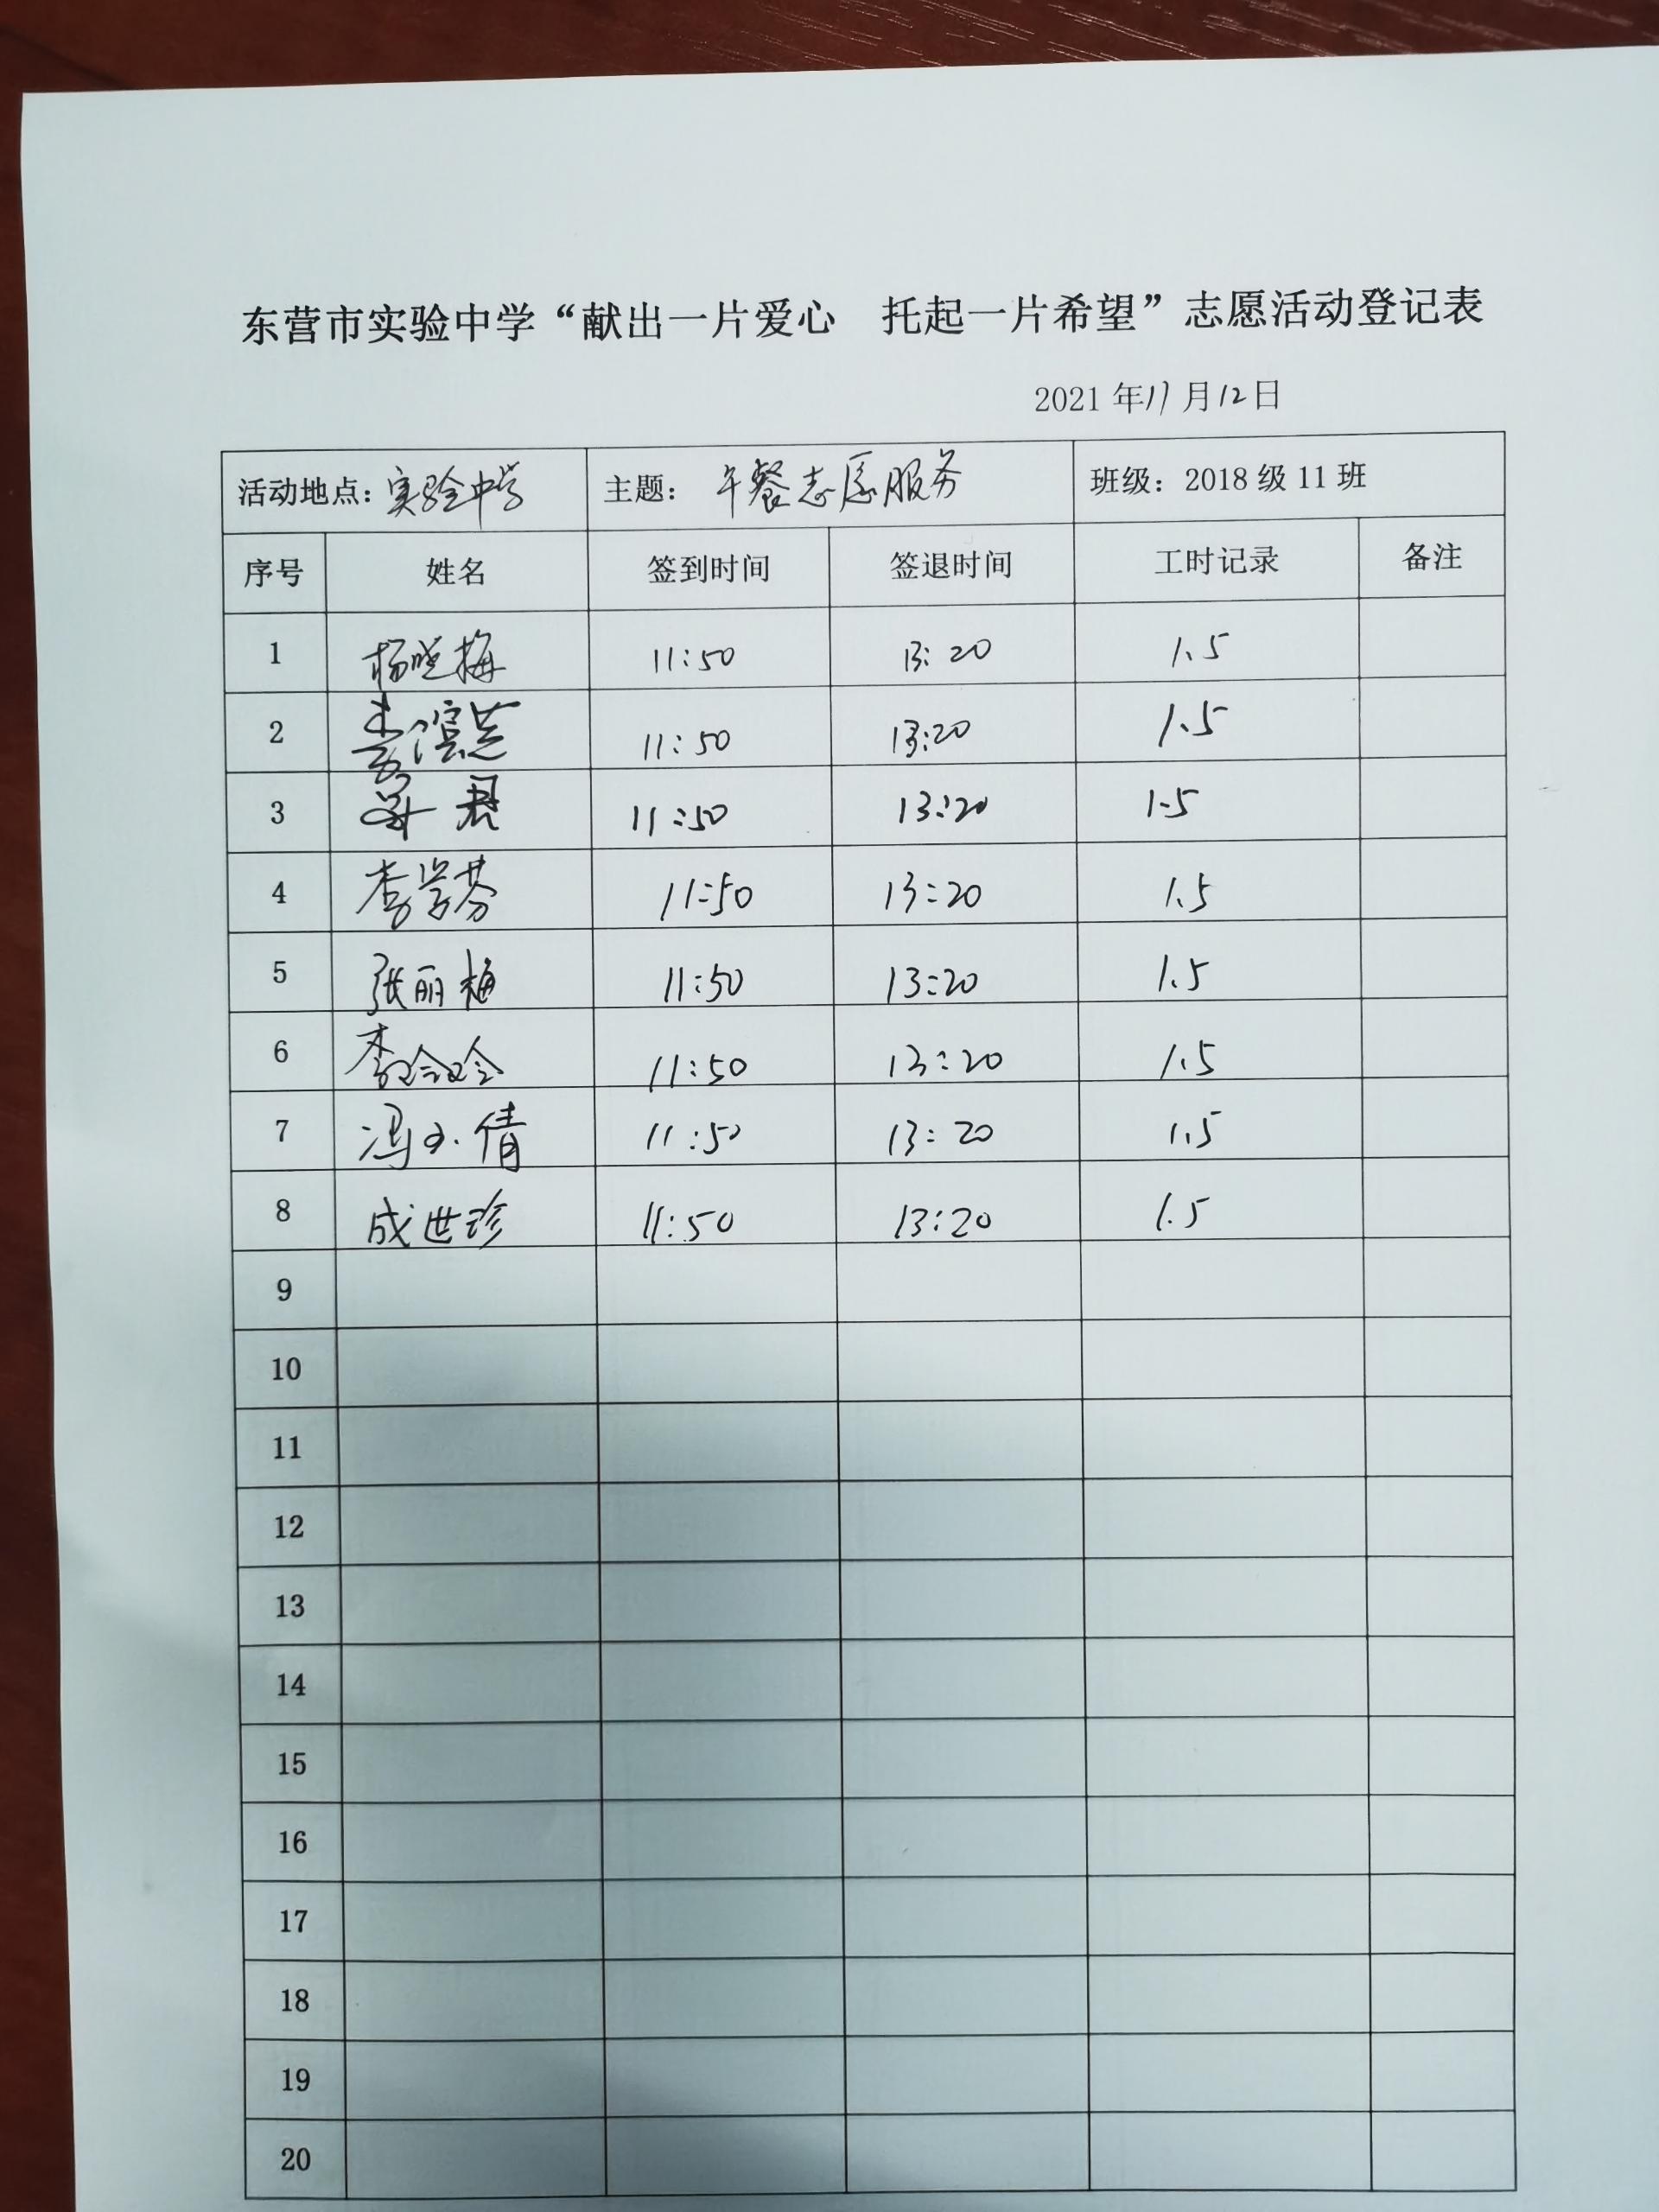 东营市实验中学“献出一片爱心 托起一片希望”志愿活动登记表
2021 年 11 月 12 日
活动地点：实验中学 主题：午餐志愿服务 班级：2018 级 11 班
序号 姓名 签到时间 签退时间 工时记录 备注
1 杨晓梅 11:50 13:20 1.5
2 11:50 13:20 1.5
3 11:50 13:20 1.5
4 李学芬 11:50 13:20 1.5
5 张丽梅 11:50 13:20 1.5
6 李玲玲 11:50 13:20 1.5
7 冯小倩 11:50 13:20 1.5
8 成世珍 11:50 13:20 1.5
9
10
11
12
13
14
15
16
17
18
19
20